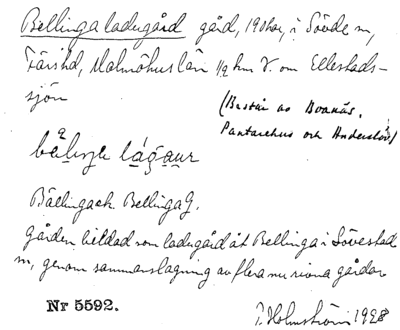 Bellinga ladugård gård, 190 har, i Sövde sn,
Färs hd, Malmöhus län 1/2 km V. om Ellestads-
sjön
(Består av Boanäs,
Pantarehus och Anderslöv)
Bällinga ch. Bellinga G.
gården bildad som ladugård åt Bellinga i Sövestad
sn, genom sammanslagning av flera nu rivna gårdar
Nr 5592.
I. Holmström 1928